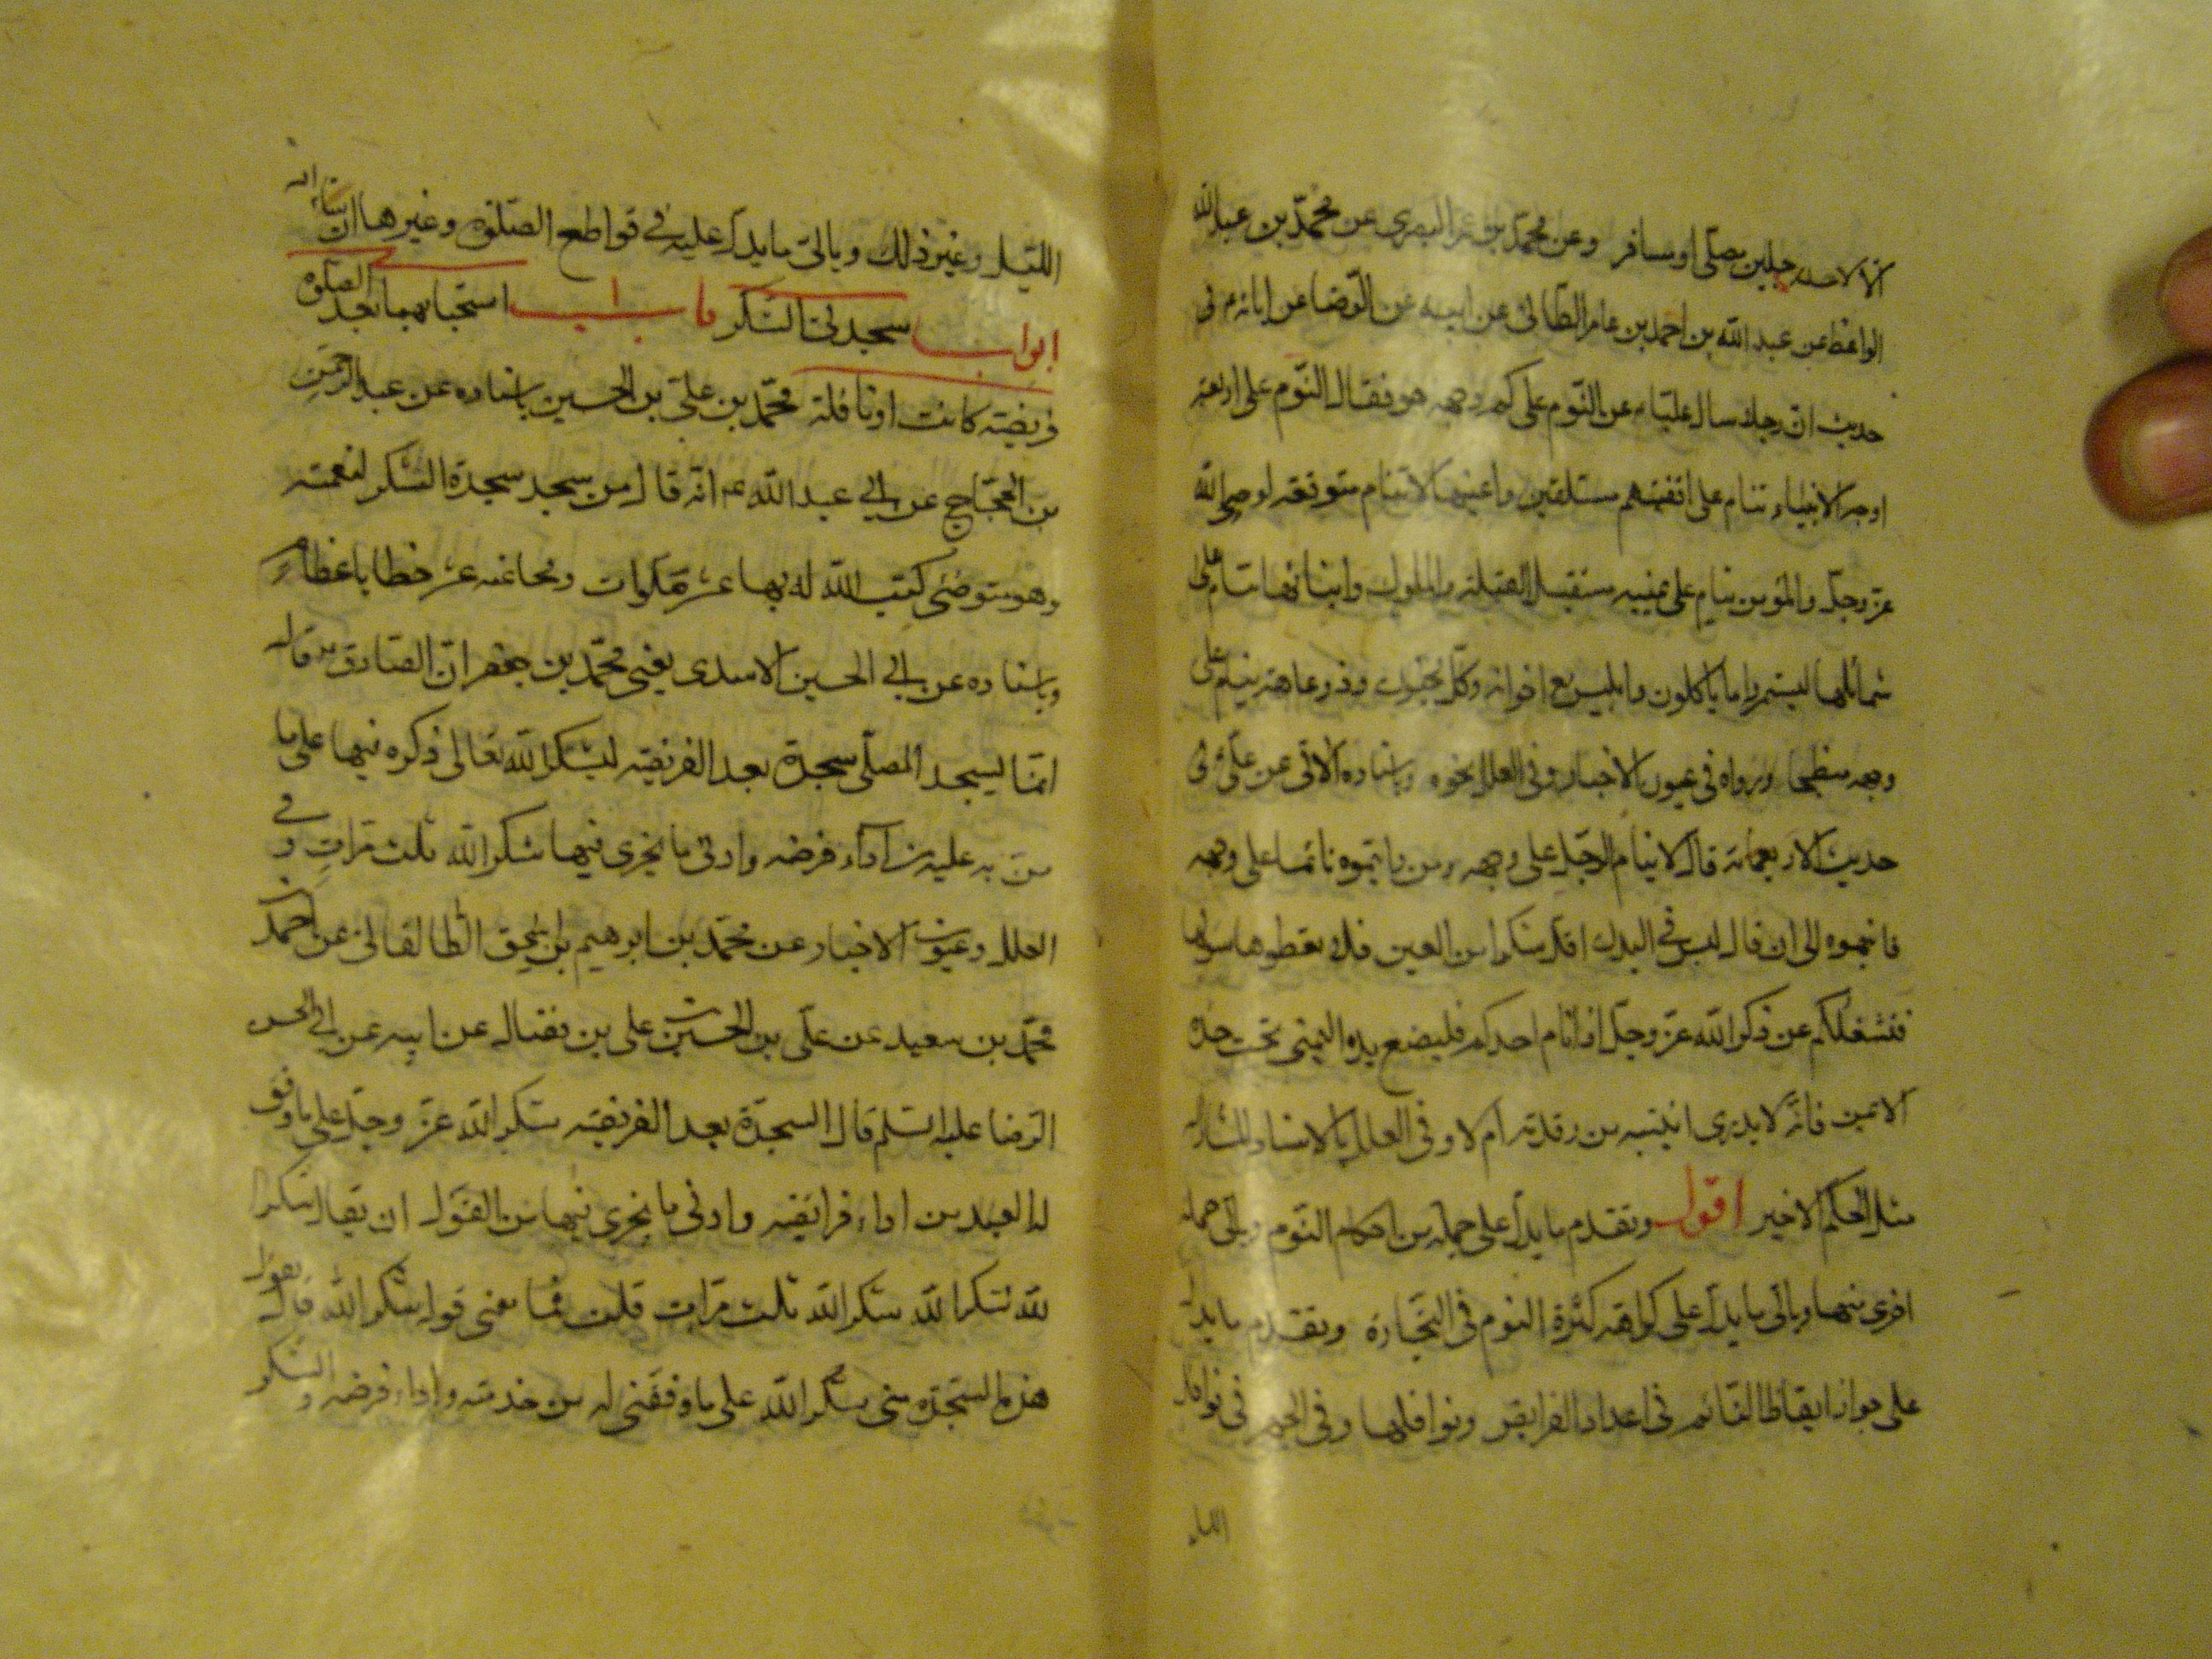 الا لاحد رجلين مصلي او مسافر وعن محمد بن عمر البصري عن محمد بن عبد الله
الواعظ عن عبد الله بن احمد بن عامر الطائي عن ابيه عن الرضا عن ابائه ع في
حديث ان رجلا سال عليا ع عن النوم على كم وجه هو فقال النوم على اربعة
اوجه الانبياء تنام على اقفيتهم مستلقين واعينها لا تنام متوقعة لوحي الله
عز وجل والمؤمن ينام على يمينه مستقبل القبلة والملوك وابنائها تنام على
شمائلها ليستمروا ما ياكلون وابليس مع اخوانه وكل مجنون وذو عاهة ينام على
وجهه منبطحا ورواه في عيون الاخبار وفي العلل نحوه وباسناده الاتي عن علي ع في
حديث الاربعمائة قال لا ينام الرجل على وجهه ومن رايتموه نائما على وجهه
فانبهوه الى ان قال ليس في البدن اقل شكرا من العين فلا تعطوها سولها
فتشغلكم عن ذكر الله عز وجل اذا نام احدكم فليضع يده اليمنى تحت خده
الايمن فانه لا يدري اينتبه من رقدته ام لا وفي العلل بالاسناد المشار اليه
مثل الحكم الاخير اقول وتقدم ما يدل على جملة من احكام النوم وياتي جملة
اخرى منها وياتي ما يدل على كراهة كثرة النوم في التجارة وتقدم ما يدل
على جواز ايقاظ النائم في اعداد الفرايض ونوافلها وفي الجهر في نوافل
الليل
الليل وغير ذلك وياتي ما يدل عليه في قواطع الصلوة وغيرها ان شاء الله
ابواب سجدتي الشكر باب استحبابهما بعد الصلوة
فريضة كانت او نافلة محمد بن علي بن الحسين باسناده عن عبد الرحمن
بن الحجاج عن ابي عبد الله ع انه قال من سجد سجدة الشكر لنعمة
وهو متوضئ كتب الله له بها عشر صلوات ومحا عنه عشر خطايا عظام
وباسناده عن ابي الحسين الاسدي يعني محمد بن جعفر ان الصادق ع قال
انما يسجد المصلي سجدة بعد الفريضة ليشكر الله تعالى ذكره فيها على ما
من به عليه من اداء فرضه وادنى ما يجزي فيها شكرا لله ثلث مرات وفي
العلل وعيون الاخبار عن محمد بن ابرهيم بن اسحق الطالقاني عن احمد بن
محمد بن سعيد عن علي بن الحسن بن علي بن فضال عن ابيه عن ابي الحسن
الرضا عليه السلم قال السجدة بعد الفريضة شكرا لله عز وجل على ما وفق
له العبد من اداء فرائضه وادنى ما يجزي فيها من القول ان يقال شكرا
لله شكرا لله شكرا لله ثلث مرات قلت فما معنى قوله شكرا لله قال يقول
هذه السجدة مني شكرا لله على ما وفقني له من خدمته واداء فرضه والشكر